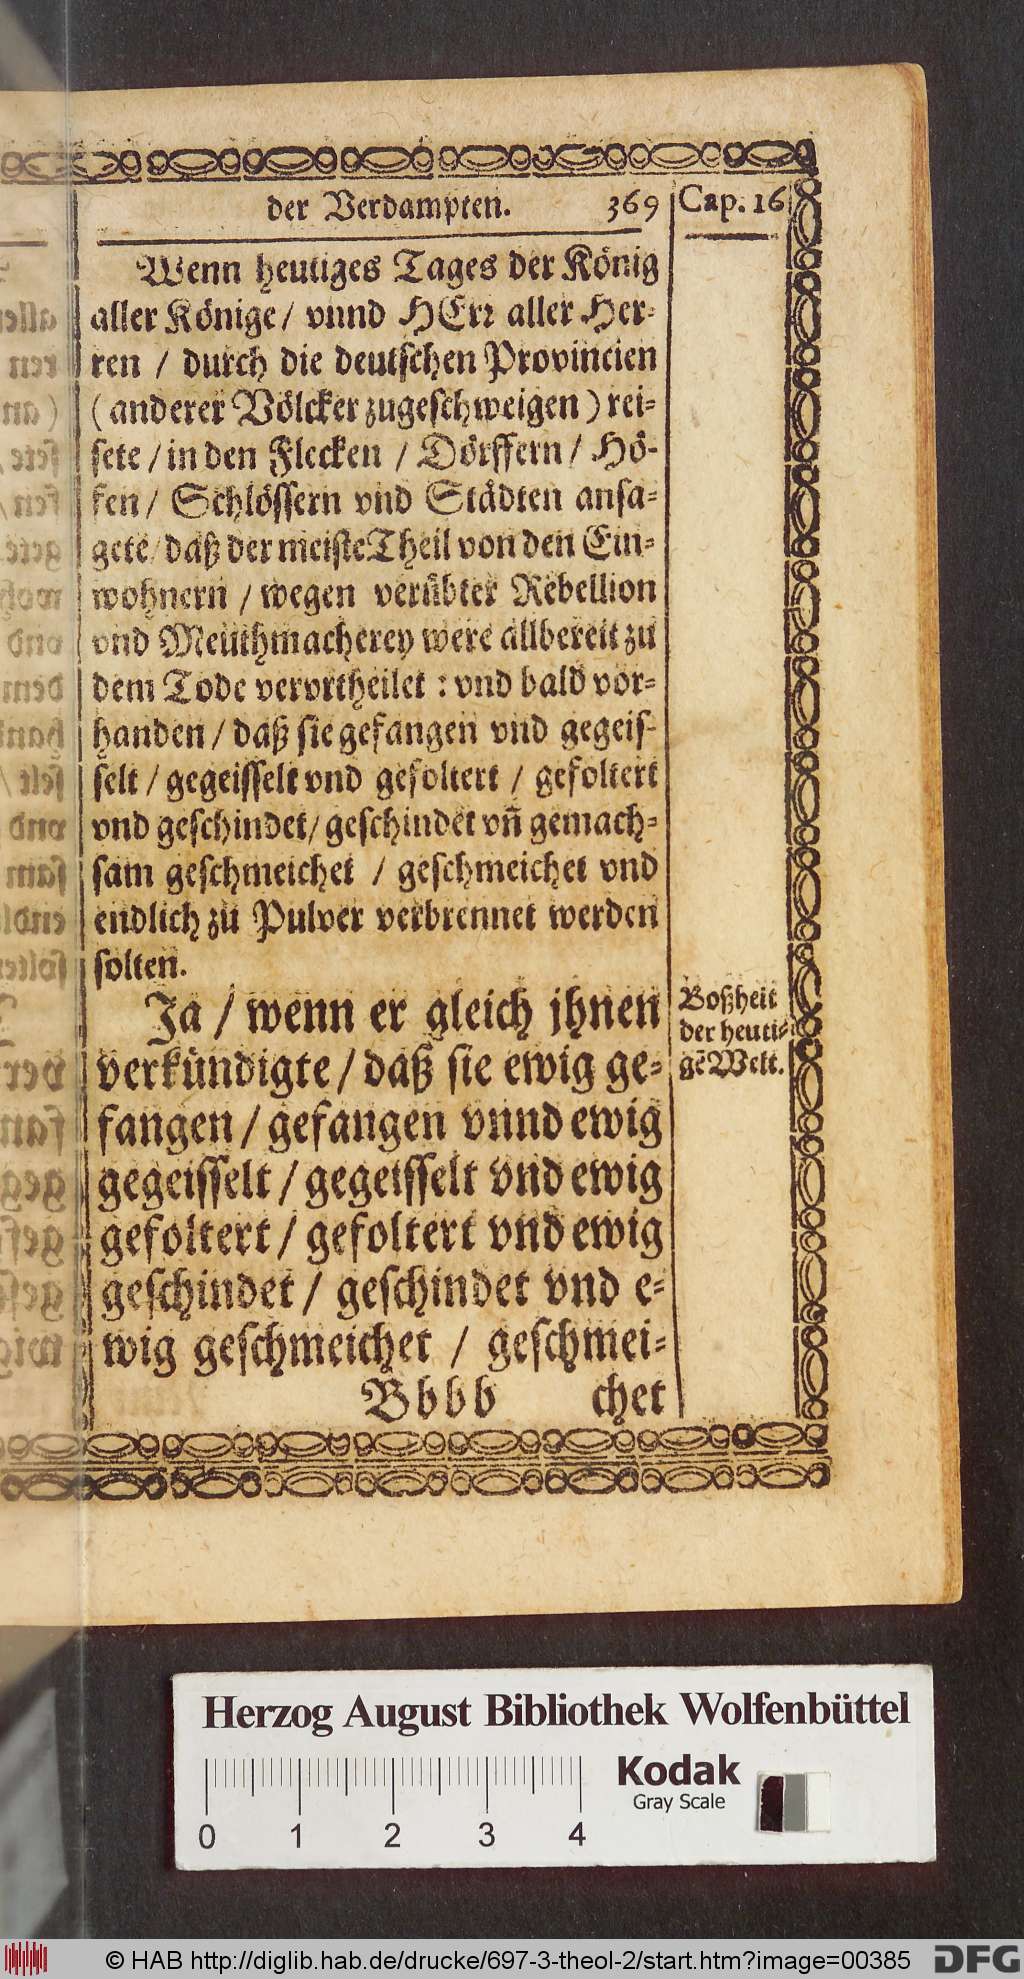 der Verdampten. 369 Cap. 16
Wenn heutiges Tages der König
aller Könige / vnnd HErꝛ aller Her-
ren / durch die deutschen Provincien
(anderer Völcker zugeschweigen) rei-
sete / in den Flecken / Dörffern / Hö-
fen / Schlössern vnd Städten ansa-
gete / daß der meiste Theil von den Ein-
wohnern / wegen verübter Rebellion
vnd Meuthmacherey were allbereit zu
dem Tode vervrtheilet : vnd bald vor-
handen / daß sie gefangen vnd gegeis-
selt / gegeisselt vnd gefoltert / gefoltert
vnd geschindet / geschindet vñ gemach-
sam geschmeichet / geschmeichet vnd
endlich zu Pulver verbrennet werden
solten.
Ja / wenn er gleich jhnen
verkündigte / daß sie ewig ge-
fangen / gefangen vnnd ewig
gegeisselt / gegeisselt vnd ewig
gefoltert / gefoltert vnd ewig
geschindet / geschindet vnd e-
wig geschmeichet / geschmei-
Bbbb chet
Boßheit
der heuti-
gē Welt.
Herzog August Bibliothek Wolfenbüttel
Kodak
Gray Scale
0 1 2 3 4
© HAB http://diglib.hab.de/drucke/697-3-theol-2/start.htm?image=00385 DFG